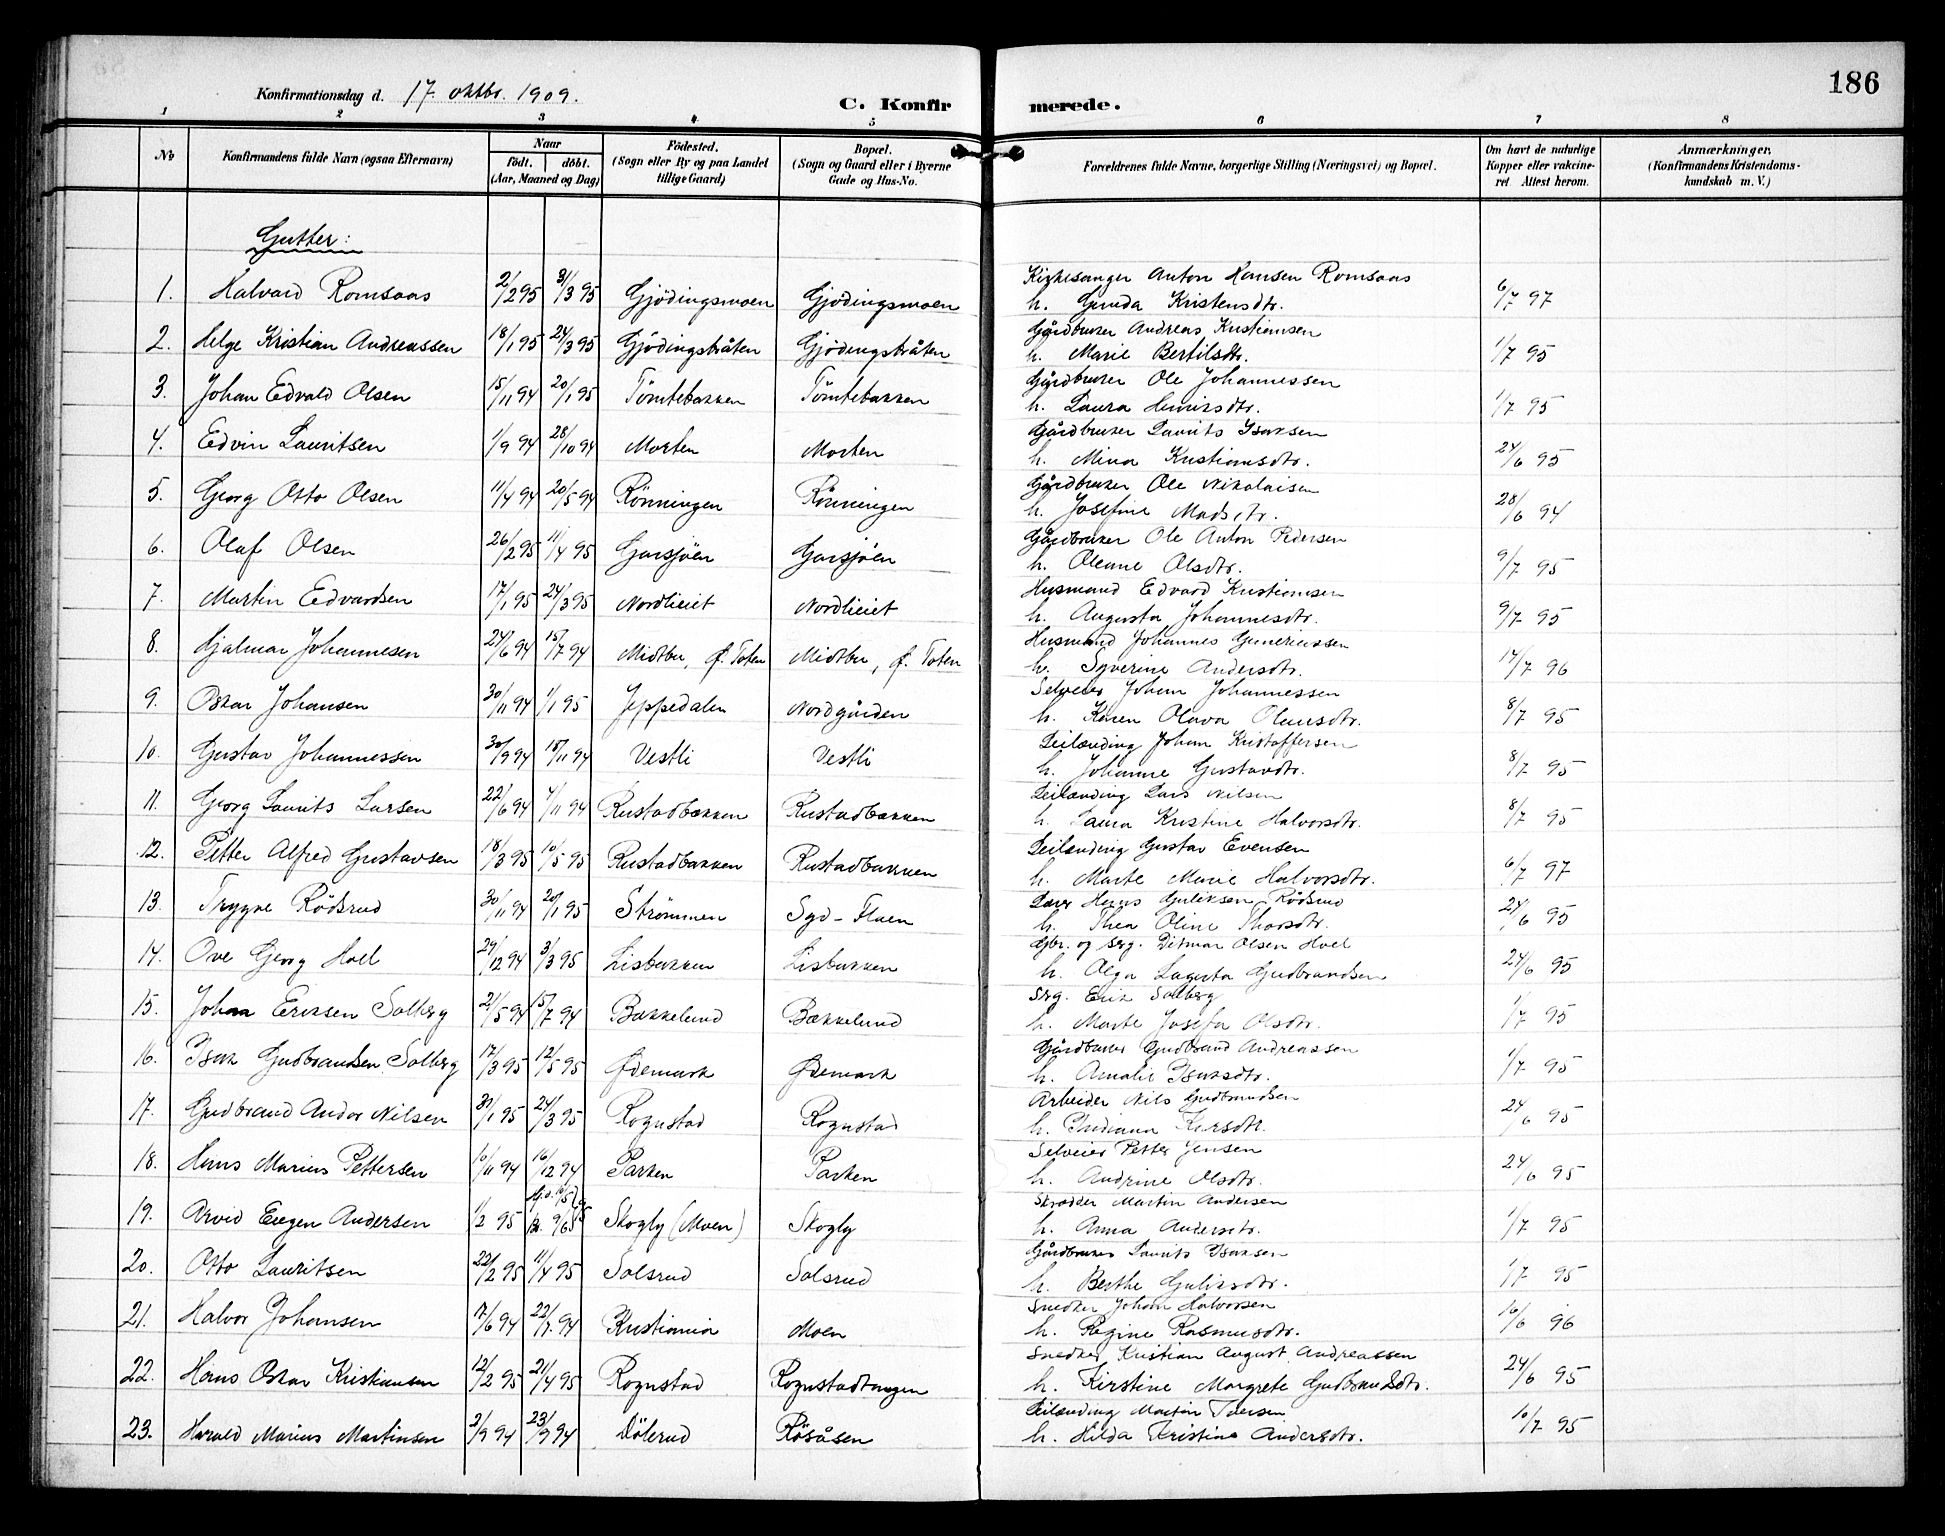 186
Konfirmationsdag d. 17. oktbr. 1909.
C. Konfirmerede.
1 2 3 4 5 6 7 8
No
Konfirmandens fulde Navn (ogsaa Efternavn)
Naar
født. døbt.
(Aar, Maaned og Dag)
Fødested.
(Sogn eller By og paa Landet
tillige Gaard)
Bopæl.
(Sogn og Gaard eller i Byerne
Gade og Hus-No.
Forældrenes fulde Navne, borgerlige Stilling (Næringsvei) og Bopæl.
Om havt de naturlige
Kopper eller vakcine-
ret. Attest herom.
Anmærkninger,
(Konfirmandens Kristendoms-
kundskab m. V.)
Gutter:
Kirkesanger Anton Hansen Romsaas
1. Halvard Romsaas 2/2 95 31/3 95 Gjödingsmoen Gjödingsmoen h. Gunda Kristensdtr. 6/7 97
Gårdbruker Andreas Kristiansen
2. Helge Kristian Andreassen 18/1 95 24/3 95 Gjödingsbråten Gjödingsbråten h. Marie Bertilsdtr. 1/7 95
Gårdbruker Ole Johannessen
3. Johan Edvald Olsen 15/11 94 20/1 95 Tömtebakken Tömtebakken h. Laura Henriksdtr. 1/7 95
Gårdbruker Laurits Isaksen
4. Edvin Lauritsen 1/9 94 28/10 94 Morten Morten h. Mina Kristiansdtr. 24/6 95
Gårdbruker Ole Nikolaisen
5. Georg Otto Olsen 11/4 94 20/5 94 Rönningen Rönningen h. Josefine Madsdtr. 28/6 94
Gårdbruker Ole Anton Pedersen
6. Olaf Olsen 26/2 95 11/4 95 Garsjöen Garsjöen h. Oleane Olsdtr. 9/7 95
Husmand Edvard Kristiansen
7. Martin Edvardsen 17/1 95 24/3 95 Nordlieiet Nordlieiet h. Augusta Johannesdtr. 9/7 95
Husmand Johannes Guneriussen
8. Hjalmar Johannesen 24/6 94 15/7 94 Midtbu, Ø. Toten Midtbu, Ø. Toten h. Syverine Andersdtr. 14/7 96
Selveier Johan Johannessen
9. Oskar Johansen 30/11 94 1/1 95 Jeppedalen Nordgården h. Karen Olava Olausdtr. 8/7 95
Leilænding Johan Kristoffersen
10. Gustav Johannessen 30/9 94 18/11 94 Vestli Vestli h. Johanne Gustavdtr. 8/7 95
Leilænding Lars Nilsen
11. Georg Laurits Larsen 22/6 94 4/11 94 Rustadbakken Rustadbakken h. Laura Kristine Halvorsdtr. 8/7 95
Leilænding Gustav Evensen
12. Petter Alfred Gustavsen 18/3 95 10/5 95 Rustadbakken Rustadbakken h. Marte Marie Halvorsdtr. 6/7 97
Lærer Hans Guliksen Rödsrud
13. Trygve Rödsrud 30/11 94 20/1 95 Strömmen Syd-Fluen h. Thea Oline Thorsdtr. 24/6 95
Gbr. og Srg. Ditmar Olsen Hoel
14. Ove Georg Hoel 29/12 94 3/3 95 Lisbakken Lisbakken h. Olga Lagusta Gudbrandsen 24/6 95
Srg. Erik Solberg
15. Johan Eriksen Solberg 21/5 94 15/7 94 Bækkelund Bækkelund h. Marte Josefa Olsdtr. 1/7 95
Gårdbruker Gudbrand Andreassen
16. Isak Gudbrandsen Solberg 17/3 95 12/5 95 Ødemark Ødemark h. Amalie Isaksdtr. 1/7 95
Arbeider Nils Gudbrandsen
17. Gudbrand Andor Nilsen 31/1 95 24/3 95 Rognstad Rognstad h. Indiana Larsdtr. 24/6 95
Selveier Petter Jensen
18. Hans Marius Pettersen 10/11 94 16/12 94 Parken Parken h. Andrine Olsdtr. 24/6 95
Skrædder Martin Andersen
19. Arvid Eugen Andersen 1/2 95 9/6 95 Skogly (Moen) Skogly h. Anna Andersdtr. 1/7 95
Gårdbruker Laurits Isaksen
20. Otto Lauritsen 22/2 95 11/4 95 Solsrud Solsrud h. Berthe Guliksdtr. 1/7 95
Snedker Johan Halvorsen
21. Halvor Johansen 17/6 94 22/7 94 Kristiania Moen h. Regine Rasmusdtr. 16/6 96
Snedker Kristian August Andreassen
22. Hans Oskar Kristiansen 12/2 95 21/4 95 Rognstad Rognstadtangen h. Kirstine Margrete Gudbrandsdtr. 24/6 95
Leilænding Martin Iversen
23. Harald Marius Martinsen 3/9 94 23/9 94 Dölerud Rösåsen h. Hilda Kristine Andersdtr. 10/7 95